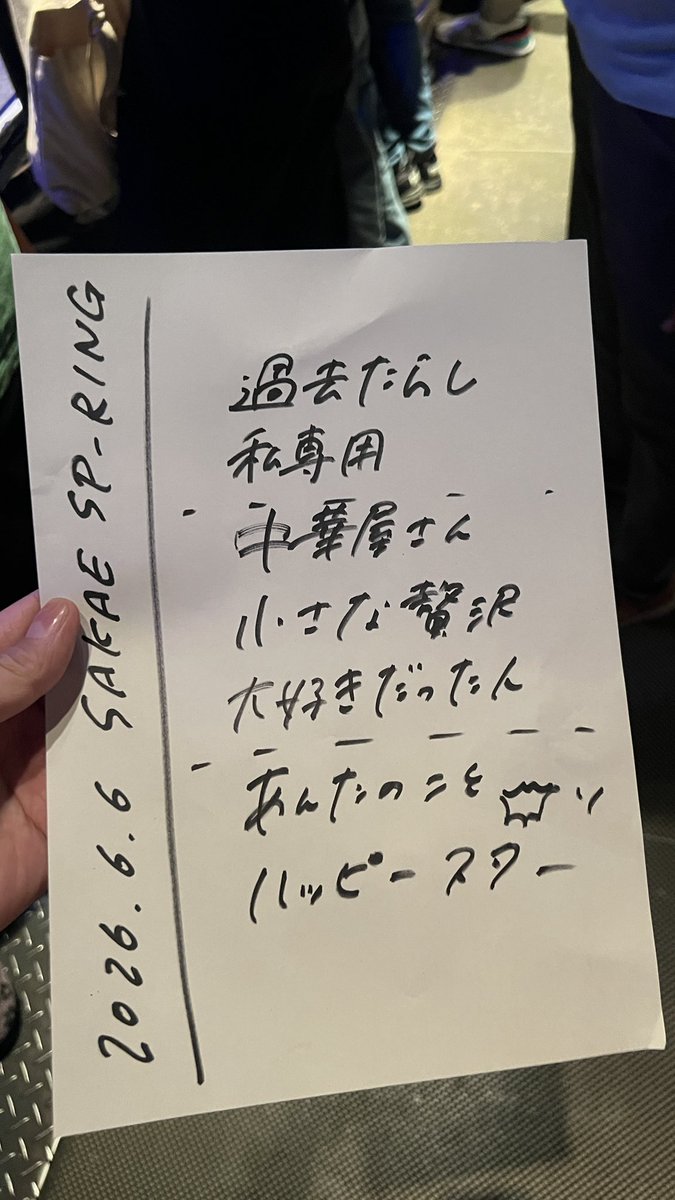 2026.6.6 SAKAE SP-RING
過去たらし
私専用
中華屋さん
小さな贅沢
大好きだったん
あんたのこと
ハッピースター